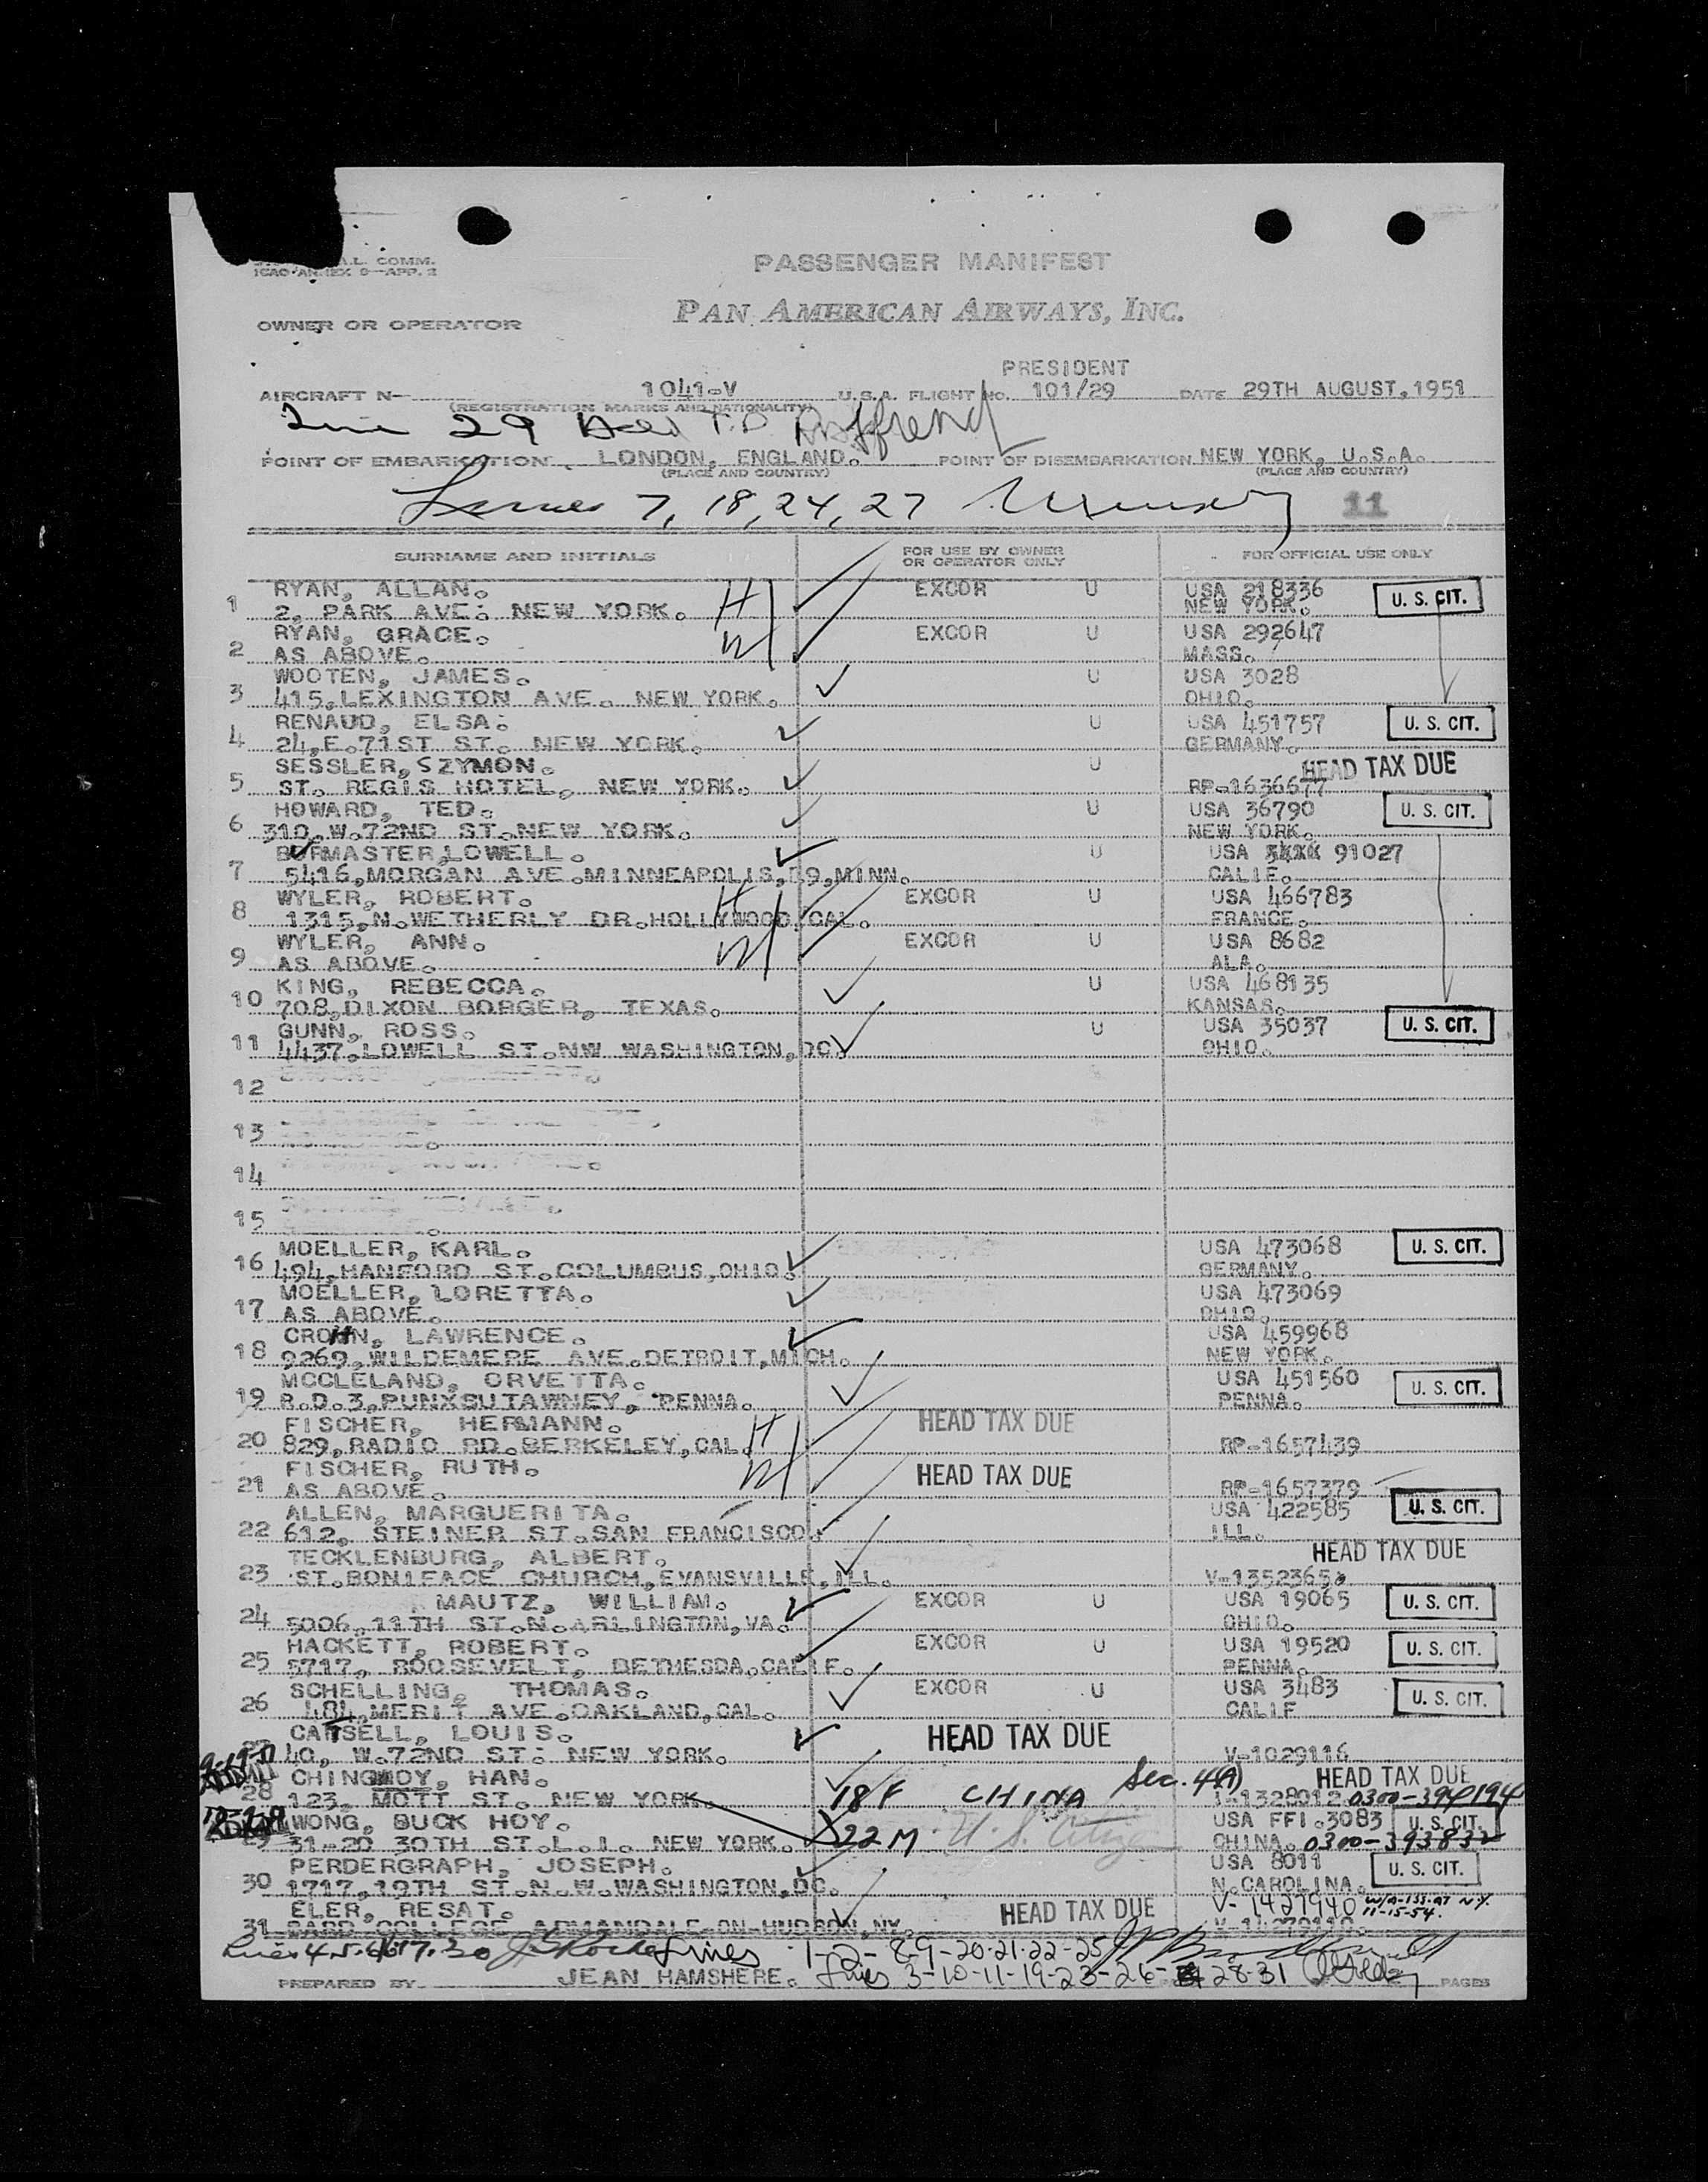 A.L. COMM.
ICAO ANNEX 9—APP. 2
PASSENGER MANIFEST
OWNER OR OPERATOR PAN AMERICAN AIRWAYS, INC.
PRESIDENT
AIRCRAFT N- 1041-V U.S.A. FLIGHT NO. 101/29 DATE 29TH AUGUST, 1951
(REGISTRATION MARKS AND NATIONALITY)
29
POINT OF EMBARKATION LONDON, ENGLAND. POINT OF DISEMBARKATION NEW YORK, U.S.A.
(PLACE AND COUNTRY) (PLACE AND COUNTRY)
Lines 7, 18, 24, 27 11
SURNAME AND INITIALS FOR USE BY OWNER OR OPERATOR ONLY FOR OFFICIAL USE ONLY
RYAN, ALLAN. H EXCOR U USA 218336 U. S. CIT.
1 2, PARK AVE: NEW YORK. NEW YORK.
RYAN, GRACE. W EXCOR U USA 292647
2 AS ABOVE. MASS.
WOOTEN, JAMES. U USA 3028
3 415,LEXINGTON AVE. NEW YORK. OHIO.
RENAUD, ELSA. U USA 451757 U. S. CIT.
4 24,E.71ST ST. NEW YORK. GERMANY.
SESSLER,SZYMON. U HEAD TAX DUE
5 ST. REGIS HOTEL, NEW YORK. RP-1636677
HOWARD, TED. U USA 36790 U. S. CIT.
6 310,W.72ND ST.NEW YORK. NEW YORK.
BURMASTER,LOWELL. U USA 91027
7 5416,MORGAN AVE.MINNEAPOLIS,19,MINN. CALIF.
WYLER, ROBERT. H EXCOR U USA 466783
8 1315,N.WETHERLY DR.HOLLYWOOD,CAL. FRANCE.
WYLER, ANN. W EXCOR U USA 8682
9 AS ABOVE. ALA.
KING, REBECCA. U USA 468135
10 708,DIXON BORGER, TEXAS. KANSAS.
GUNN, ROSS. U USA 35037 U. S. CIT.
11 4437,LOWELL ST.NW WASHINGTON,DC. OHIO.
12
13
14
15
MOELLER, KARL. USA 473068 U. S. CIT.
16 494,HANFORD ST.COLUMBUS,OHIO. GERMANY.
MOELLER, LORETTA. USA 473069
17 AS ABOVE. OHIO.
CROHN, LAWRENCE. USA 459968
18 9269,WILDEMERE AVE.DETROIT,MICH. NEW YORK.
MCCLELAND, ORVETTA. USA 451560 U. S. CIT.
19 R.D.3,PUNXSUTAWNEY, PENNA. PENNA.
FISCHER, HERMANN. H HEAD TAX DUE
20 829,RADIO RD.BERKELEY,CAL. RP-1657439
FISCHER, RUTH. W HEAD TAX DUE
21 AS ABOVE. RP-1657379
ALLEN, MARGUERITA. USA 422585 U. S. CIT.
22 612, STEINER ST.SAN FRANCISCO. ILL.
TECKLENBURG, ALBERT. HEAD TAX DUE
23 ST.BONIFACE CHURCH,EVANSVILLE,ILL. V-1352365
MAUTZ, WILLIAM. EXCOR U USA 19065 U. S. CIT.
24 5006,11TH ST.N.ARLINGTON,VA. OHIO.
HACKETT, ROBERT. EXCOR U USA 19520 U. S. CIT.
25 5717, ROOSEVELT, BETHESDA,CALIF. PENNA.
SCHELLING, THOMAS. EXCOR U USA 3483 U. S. CIT.
26 484,MERIT AVE.OAKLAND,CAL. CALIF
CATSELL, LOUIS. HEAD TAX DUE
40, W.72ND ST: NEW YORK. V-1029116
CHINGMOY, HAN. Sec. 4(A) HEAD TAX DUE
28 123, MOTT ST. NEW YORK. 18 F CHINA 1328012 0300-394194
WONG, BUCK HOY. 22 M U. S. Citizen USA FFI.3083 U. S. CIT.
29 31-20 30TH ST.L.I. NEW YORK. CHINA. 0300-393832
PERDERGRAPH, JOSEPH. USA 8011 U. S. CIT.
30 1717,19TH ST.N.W.WASHINGTON,DC. N.CAROLINA.
ELER, RESAT. HEAD TAX DUE V-1427940 11-15-54.
31 BARD COLLEGE ANNANDALE-ON-HUDSON,NY.
Lines 1-2-8-9-20-21-22-25
PREPARED BY JEAN HAMSHERE. Lines 3-10-11-19-23-26- 28-31 PAGES